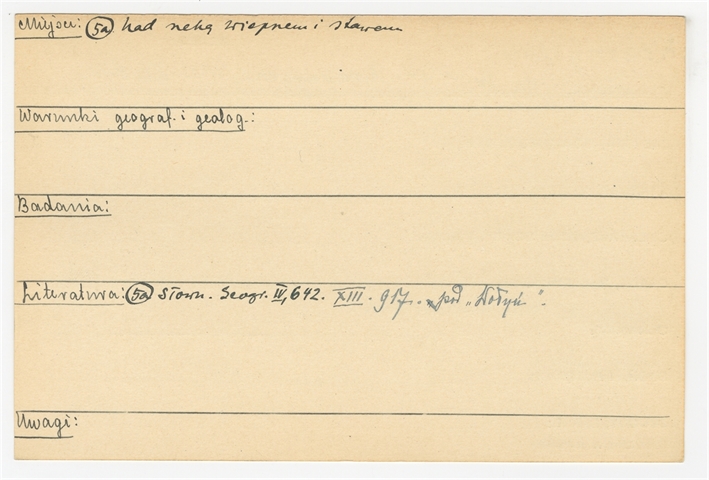 Miejsce: (5a) nad rzeką Wieprzem i stawem
Warunki geograf. i geolog.:
Badania:
Literatura: (5a) Słown. Geogr. IV, 642. XIII. 917. pod „Wołyń".
Uwagi: